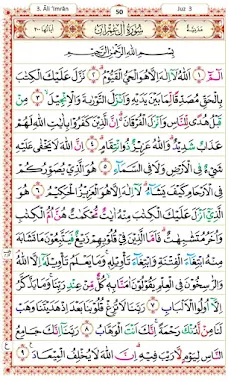 3. Âli 'Imrân
50
Juz 3
سُورَةُ آلِ عِمْرَانَ
بِسْمِ اللَّهِ الرَّحْمَٰنِ الرَّحِيمِ
الٓمٓ ١ ٱللَّهُ لَآ إِلَٰهَ إِلَّا هُوَ ٱلْحَىُّ ٱلْقَيُّومُ ٢ نَزَّلَ عَلَيْكَ ٱلْكِتَٰبَ
بِٱلْحَقِّ مُصَدِّقًا لِّمَا بَيْنَ يَدَيْهِ وَأَنزَلَ ٱلتَّوْرَىٰةَ وَٱلْإِنجِيلَ ٣ مِن
قَبْلُ هُدًى لِّلنَّاسِ وَأَنزَلَ ٱلْفُرْقَانَ إِنَّ ٱلَّذِينَ كَفَرُوا۟ بِـَٔايَٰتِ ٱللَّهِ لَهُمْ
عَذَابٌ شَدِيدٌ وَٱللَّهُ عَزِيزٌ ذُو ٱنتِقَامٍ ٤ إِنَّ ٱللَّهَ لَا يَخْفَىٰ عَلَيْهِ
شَىْءٌ فِى ٱلْأَرْضِ وَلَا فِى ٱلسَّمَآءِ ٥ هُوَ ٱلَّذِى يُصَوِّرُكُمْ
فِى ٱلْأَرْحَامِ كَيْفَ يَشَآءُ لَآ إِلَٰهَ إِلَّا هُوَ ٱلْعَزِيزُ ٱلْحَكِيمُ ٦ هُوَ
ٱلَّذِىٓ أَنزَلَ عَلَيْكَ ٱلْكِتَٰبَ مِنْهُ ءَايَٰتٌ مُّحْكَمَٰتٌ هُنَّ أُمُّ ٱلْكِتَٰبِ
وَأُخَرُ مُتَشَٰبِهَٰتٌ فَأَمَّا ٱلَّذِينَ فِى قُلُوبِهِمْ زَيْغٌ فَيَتَّبِعُونَ مَا تَشَٰبَهَ
مِنْهُ ٱبْتِغَآءَ ٱلْفِتْنَةِ وَٱبْتِغَآءَ تَأْوِيلِهِۦ وَمَا يَعْلَمُ تَأْوِيلَهُۥٓ إِلَّا ٱللَّهُ
وَٱلرَّٰسِخُونَ فِى ٱلْعِلْمِ يَقُولُونَ ءَامَنَّا بِهِۦ كُلٌّ مِّنْ عِندِ رَبِّنَا وَمَا يَذَّكَّرُ
إِلَّآ أُو۟لُوا۟ ٱلْأَلْبَٰبِ ٧ رَبَّنَا لَا تُزِغْ قُلُوبَنَا بَعْدَ إِذْ هَدَيْتَنَا وَهَبْ
لَنَا مِن لَّدُنكَ رَحْمَةً إِنَّكَ أَنتَ ٱلْوَهَّابُ ٨ رَبَّنَآ إِنَّكَ جَامِعُ
ٱلنَّاسِ لِيَوْمٍ لَّا رَيْبَ فِيهِ إِنَّ ٱللَّهَ لَا يُخْلِفُ ٱلْمِيعَادَ ٩